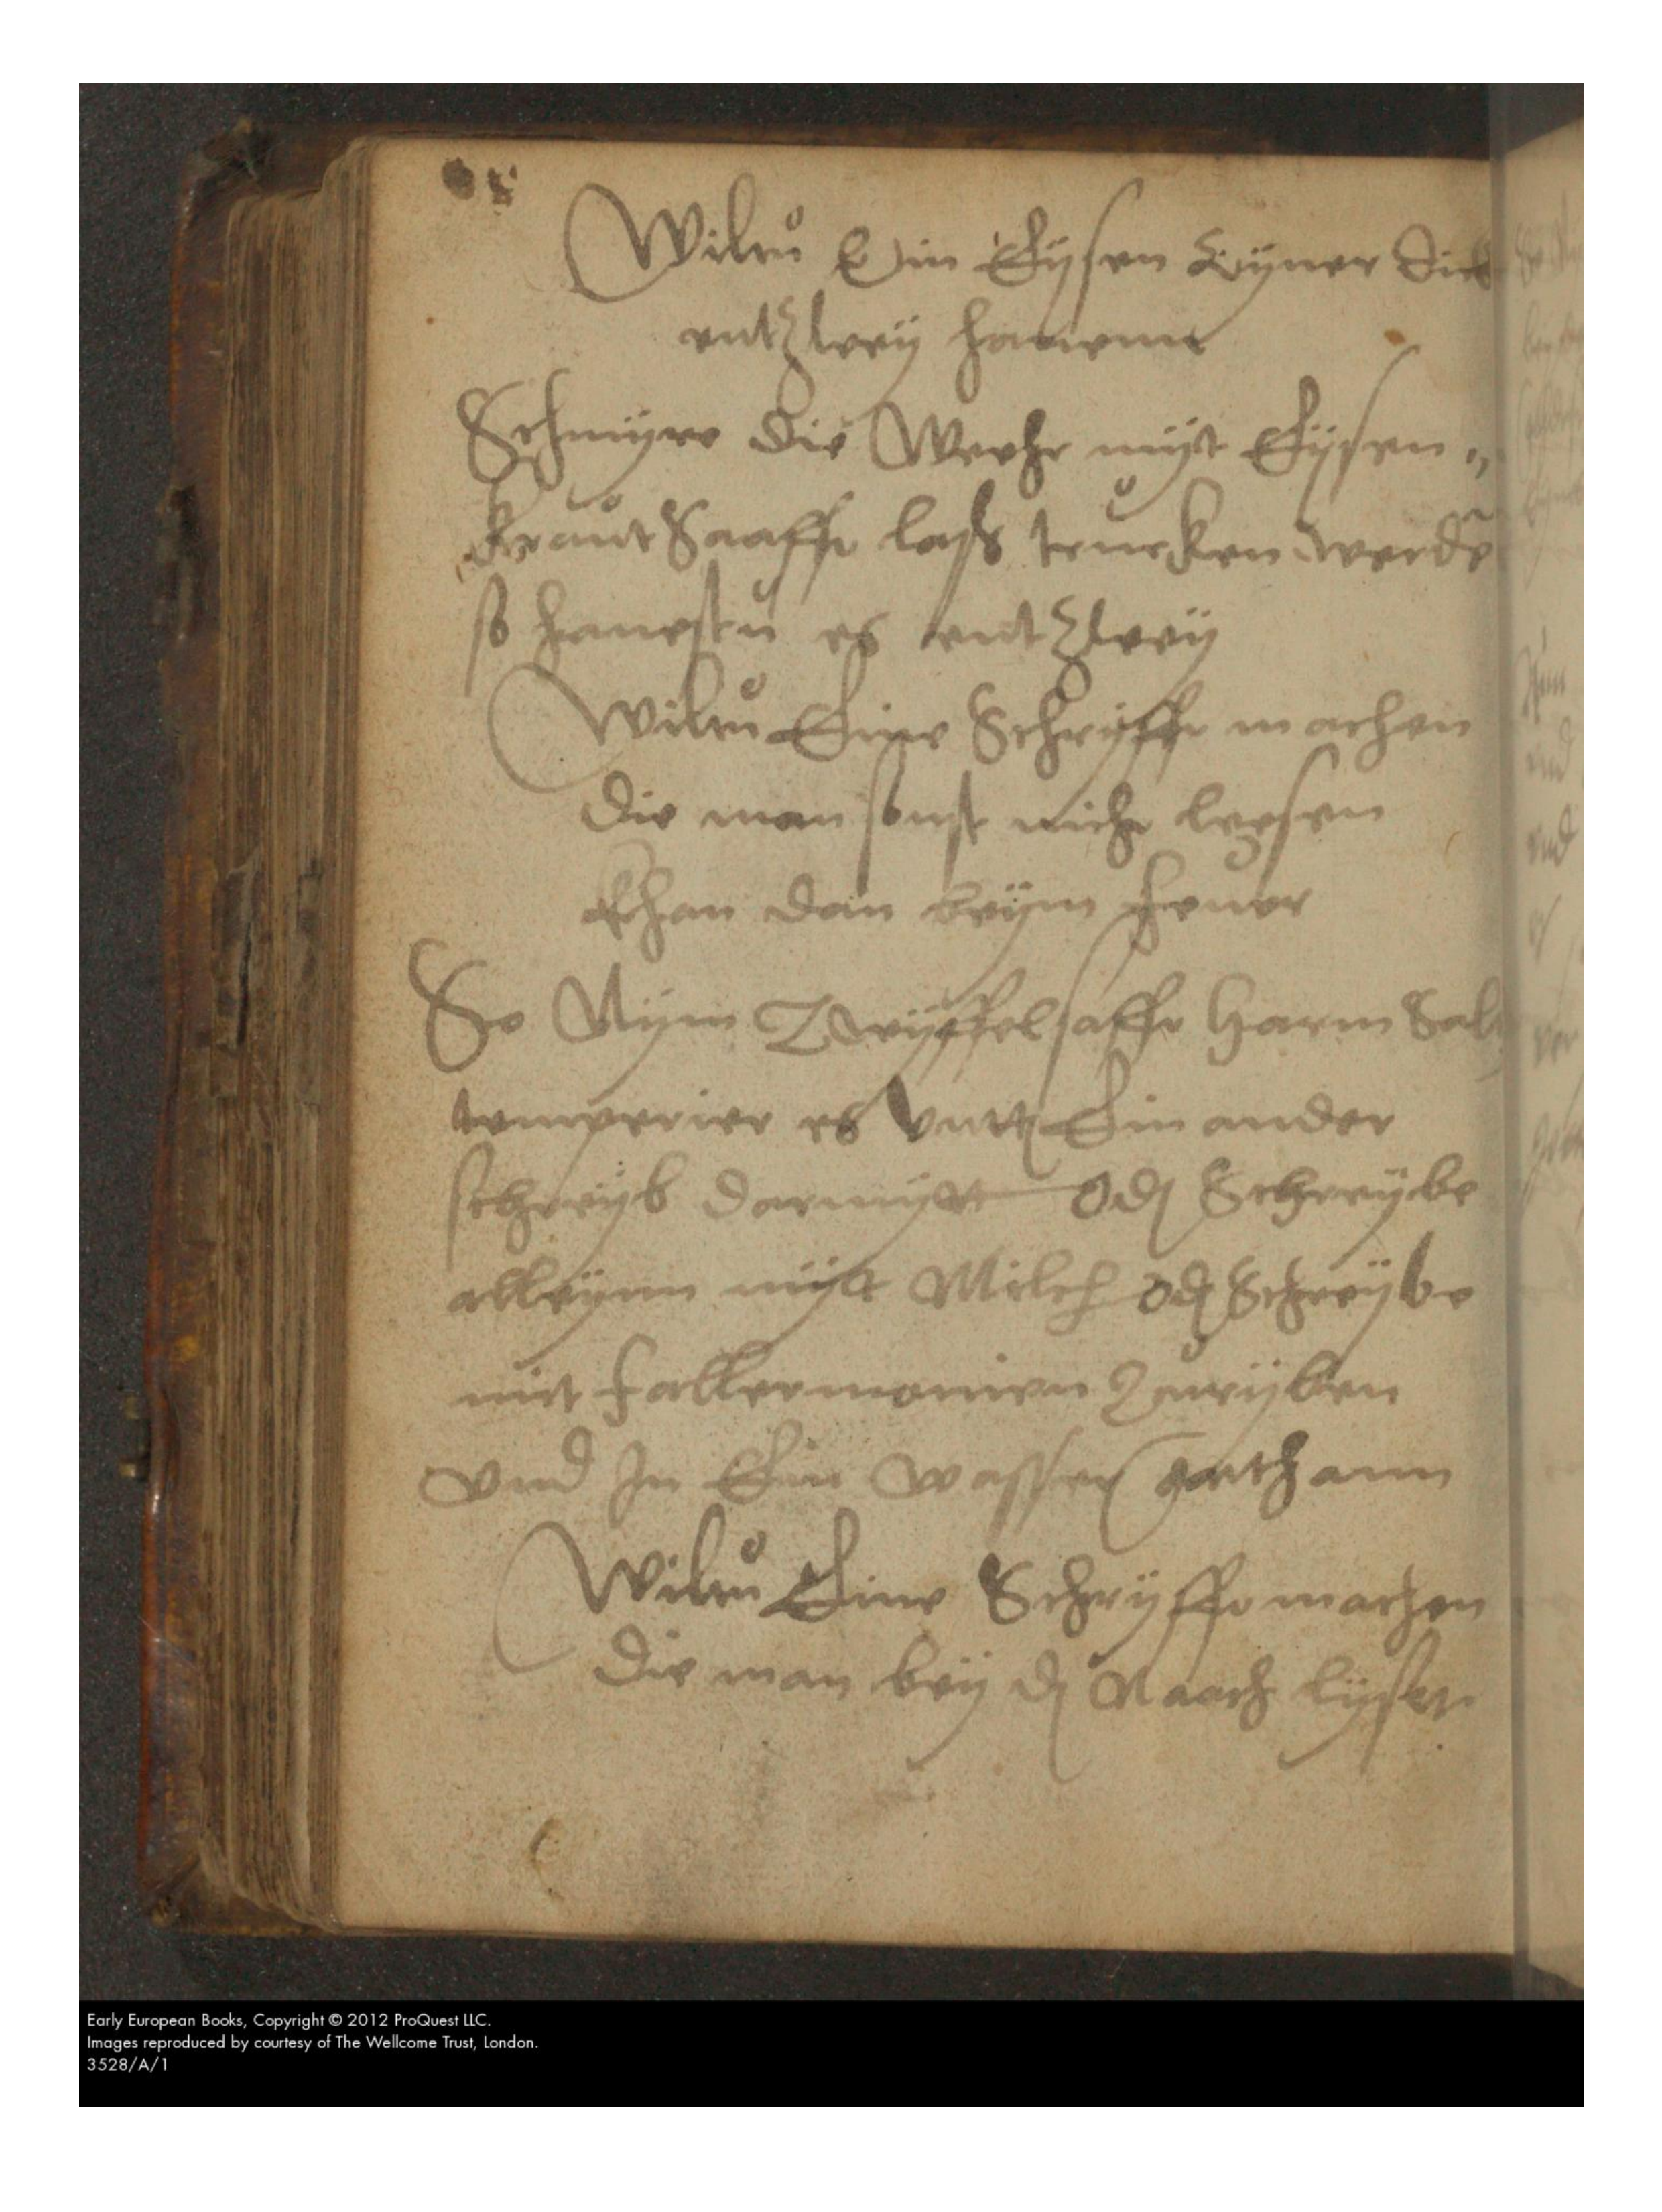 Wiltu Ein Eysen Eyner
entzwey hauenn
Schmyre die Wehr myt Eysen
kraut Saafft laß trucken werdē
so hauestu es entzwey
Wiltu Eine Schryfft machen
die man sonst nicht leesen
khan dan beym feuer
So Nym Zwyffelsafft Harm Saltz
temperier es unter Ein ander
schreyb darmytt Oder Schreybe
alleynn mytt Milch oder Schreybe
mit
vnd In Ein wasser gethann
Wiltu Eine Schryfft machen
die man bey der Nacht lyset
Early European Books, Copyright © 2012 ProQuest LLC.
Images reproduced by courtesy of The Wellcome Trust, London.
3528/A/1